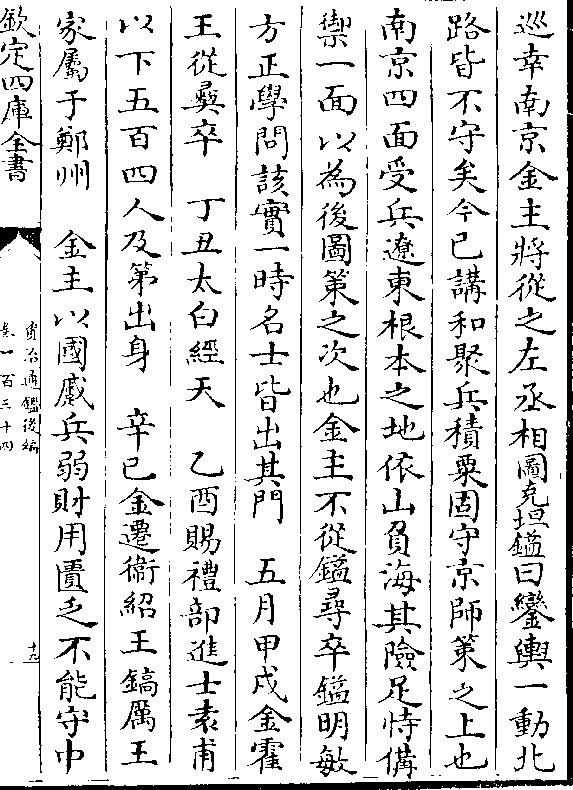 巡幸南京金主將從之左丞相圖克坦鎰曰鑾輿一動北
路皆不守矣今已講和聚兵積粟固守京師策之上也
南京四面受兵遼東根本之地依山負海其險足恃備
禦一面以為後圖策之次也金主不從鎰尋卒鎰明敏
方正學問該實一時名士皆出其門　五月甲戌金霍
王從彛卒　丁丑太白經天　乙酉賜禮部進士袁甫
以下五百四人及第出身　辛巳金遷衛紹王鎬厲王
家屬于鄭州　金主以國蹙兵弱財用匱乏不能守中
欽定四庫全書
資治通鑑後編
卷一百三十四
十九